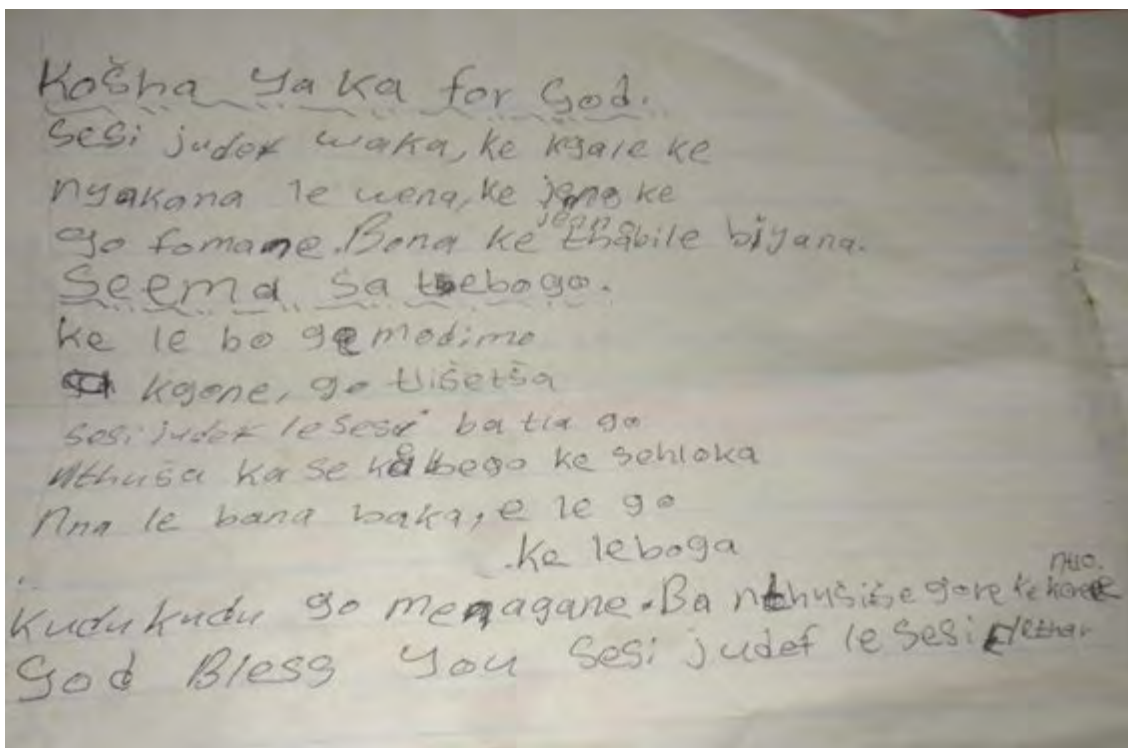 Košha ya ka for God.
Sesi judef waka, ke kgale ke
nyakana le wena, ke jeno ke
jeano
go fomane. Bona ke thabile bjyana.
Seema sa tsebogo.
ke le bo ge modimo
kgone, go tlišetša
sesi judef le sesi ba tla go
nthuša ka se ka bego ke sehloka
Nna le bana baka, e le go
ke leboga
nuo.
kudu kudu go menagane. Ba nthušiše gore ke
God Bless You Sesi judef le Sesi